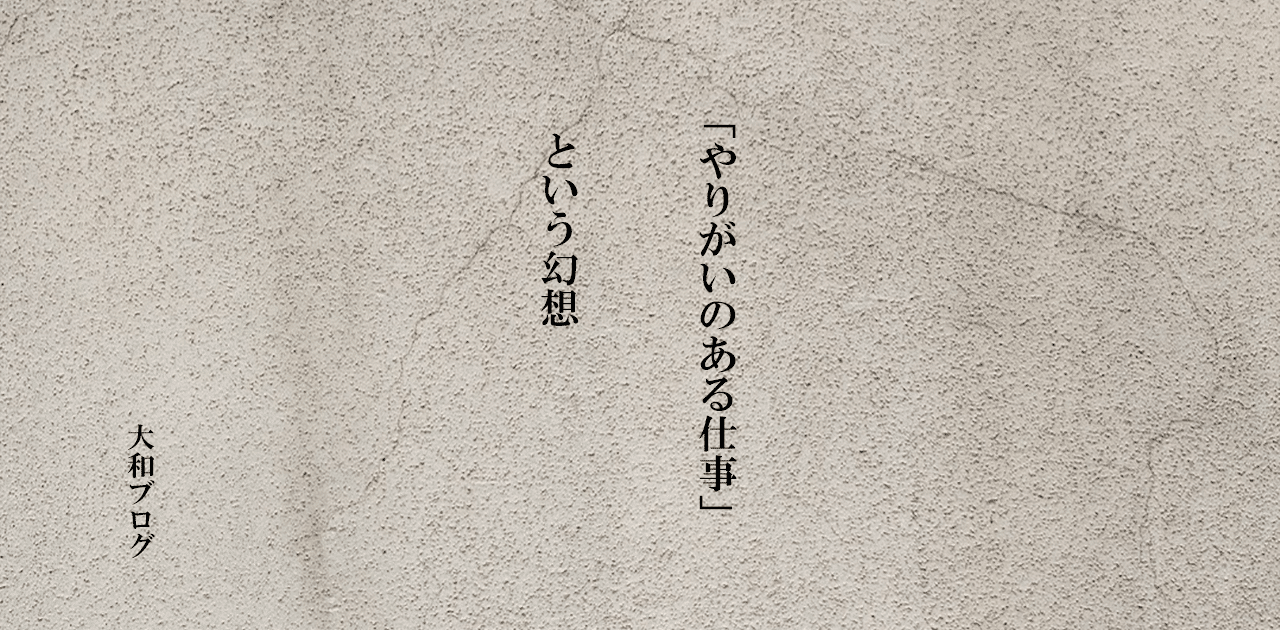 「やりがいのある仕事」
という幻想
大和ブログ